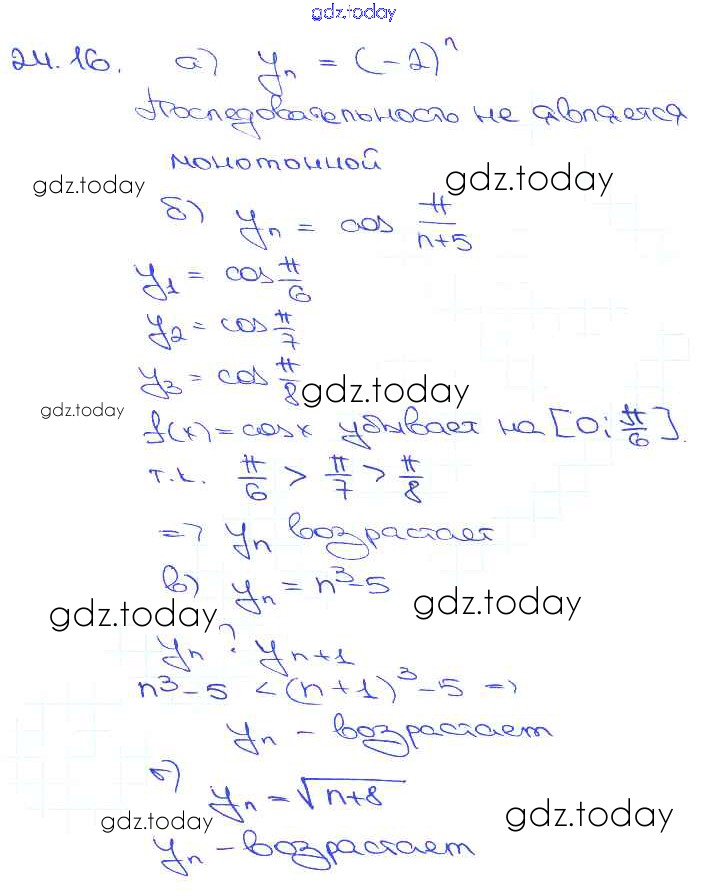 gdz.today
24.16. а) yₙ = (-2)ⁿ
Последовательность не является
монотонной
gdz.today gdz.today
б) yₙ = cos π/(n+5)
y₁ = cos π/6
y₂ = cos π/7
y₃ = cos π/8
gdz.today gdz.today
f(x) = cosx убывает на [0; π/6].
т.к. π/6 > π/7 > π/8
=> yₙ возрастает
в) yₙ = n³-5
gdz.today gdz.today
yₙ ? yₙ₊₁
n³-5 < (n+1)³-5 =>
yₙ - возрастает
г)
yₙ = √(n+8)
gdz.today gdz.today
yₙ - возрастает